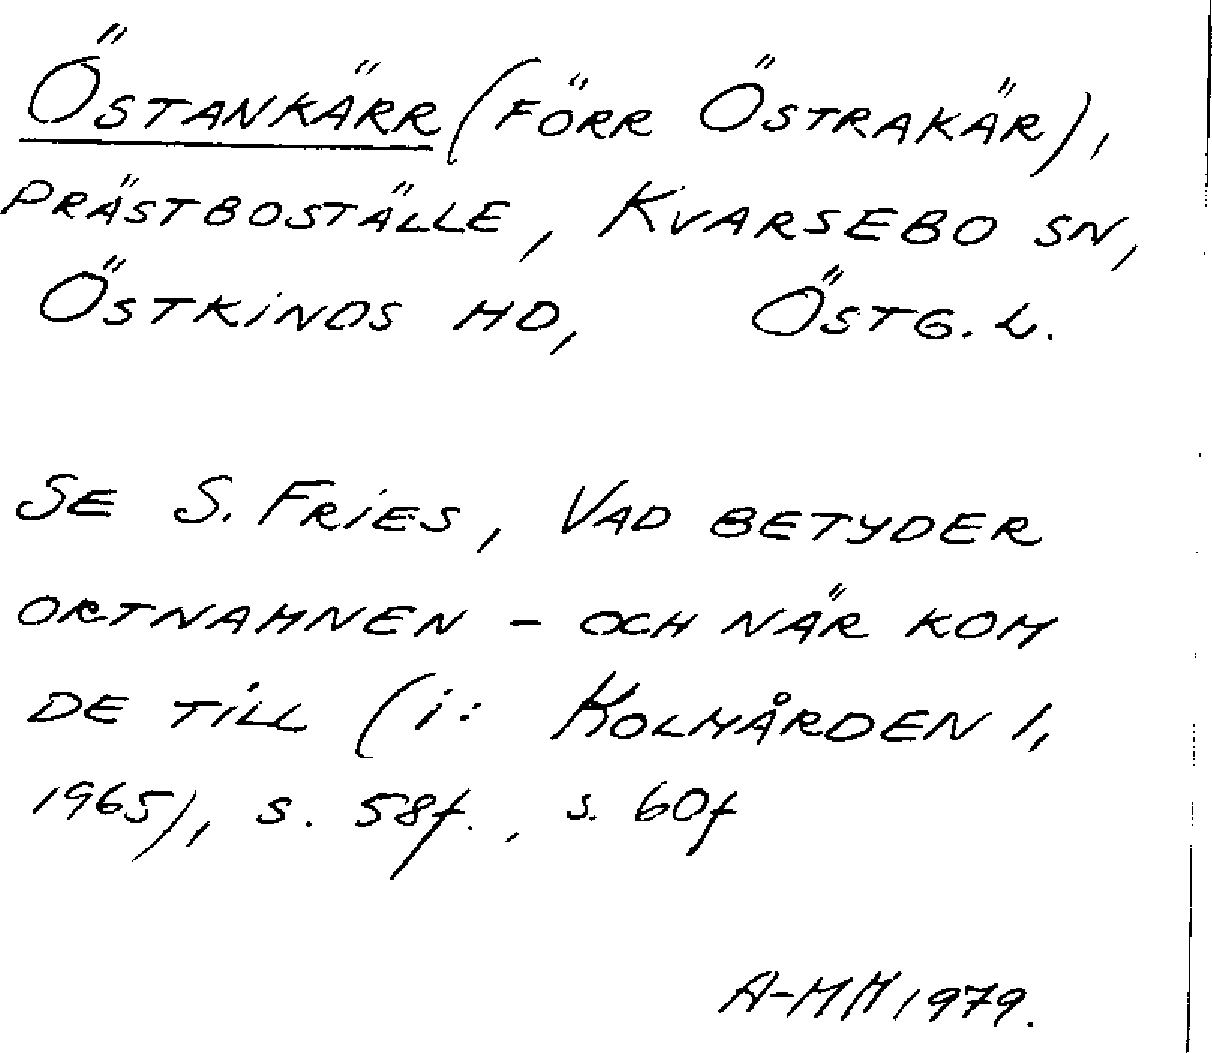 Östankärr (förr Östrakär),
prästboställe, Kvarsebo sn,
Östkinds hd, Östg.L.
Se S. Fries, Vad betyder
ortnamnen - och när kom
de till (i: Kolmården 1,
1965), s. 58f., s. 60f
A-MM 1979.